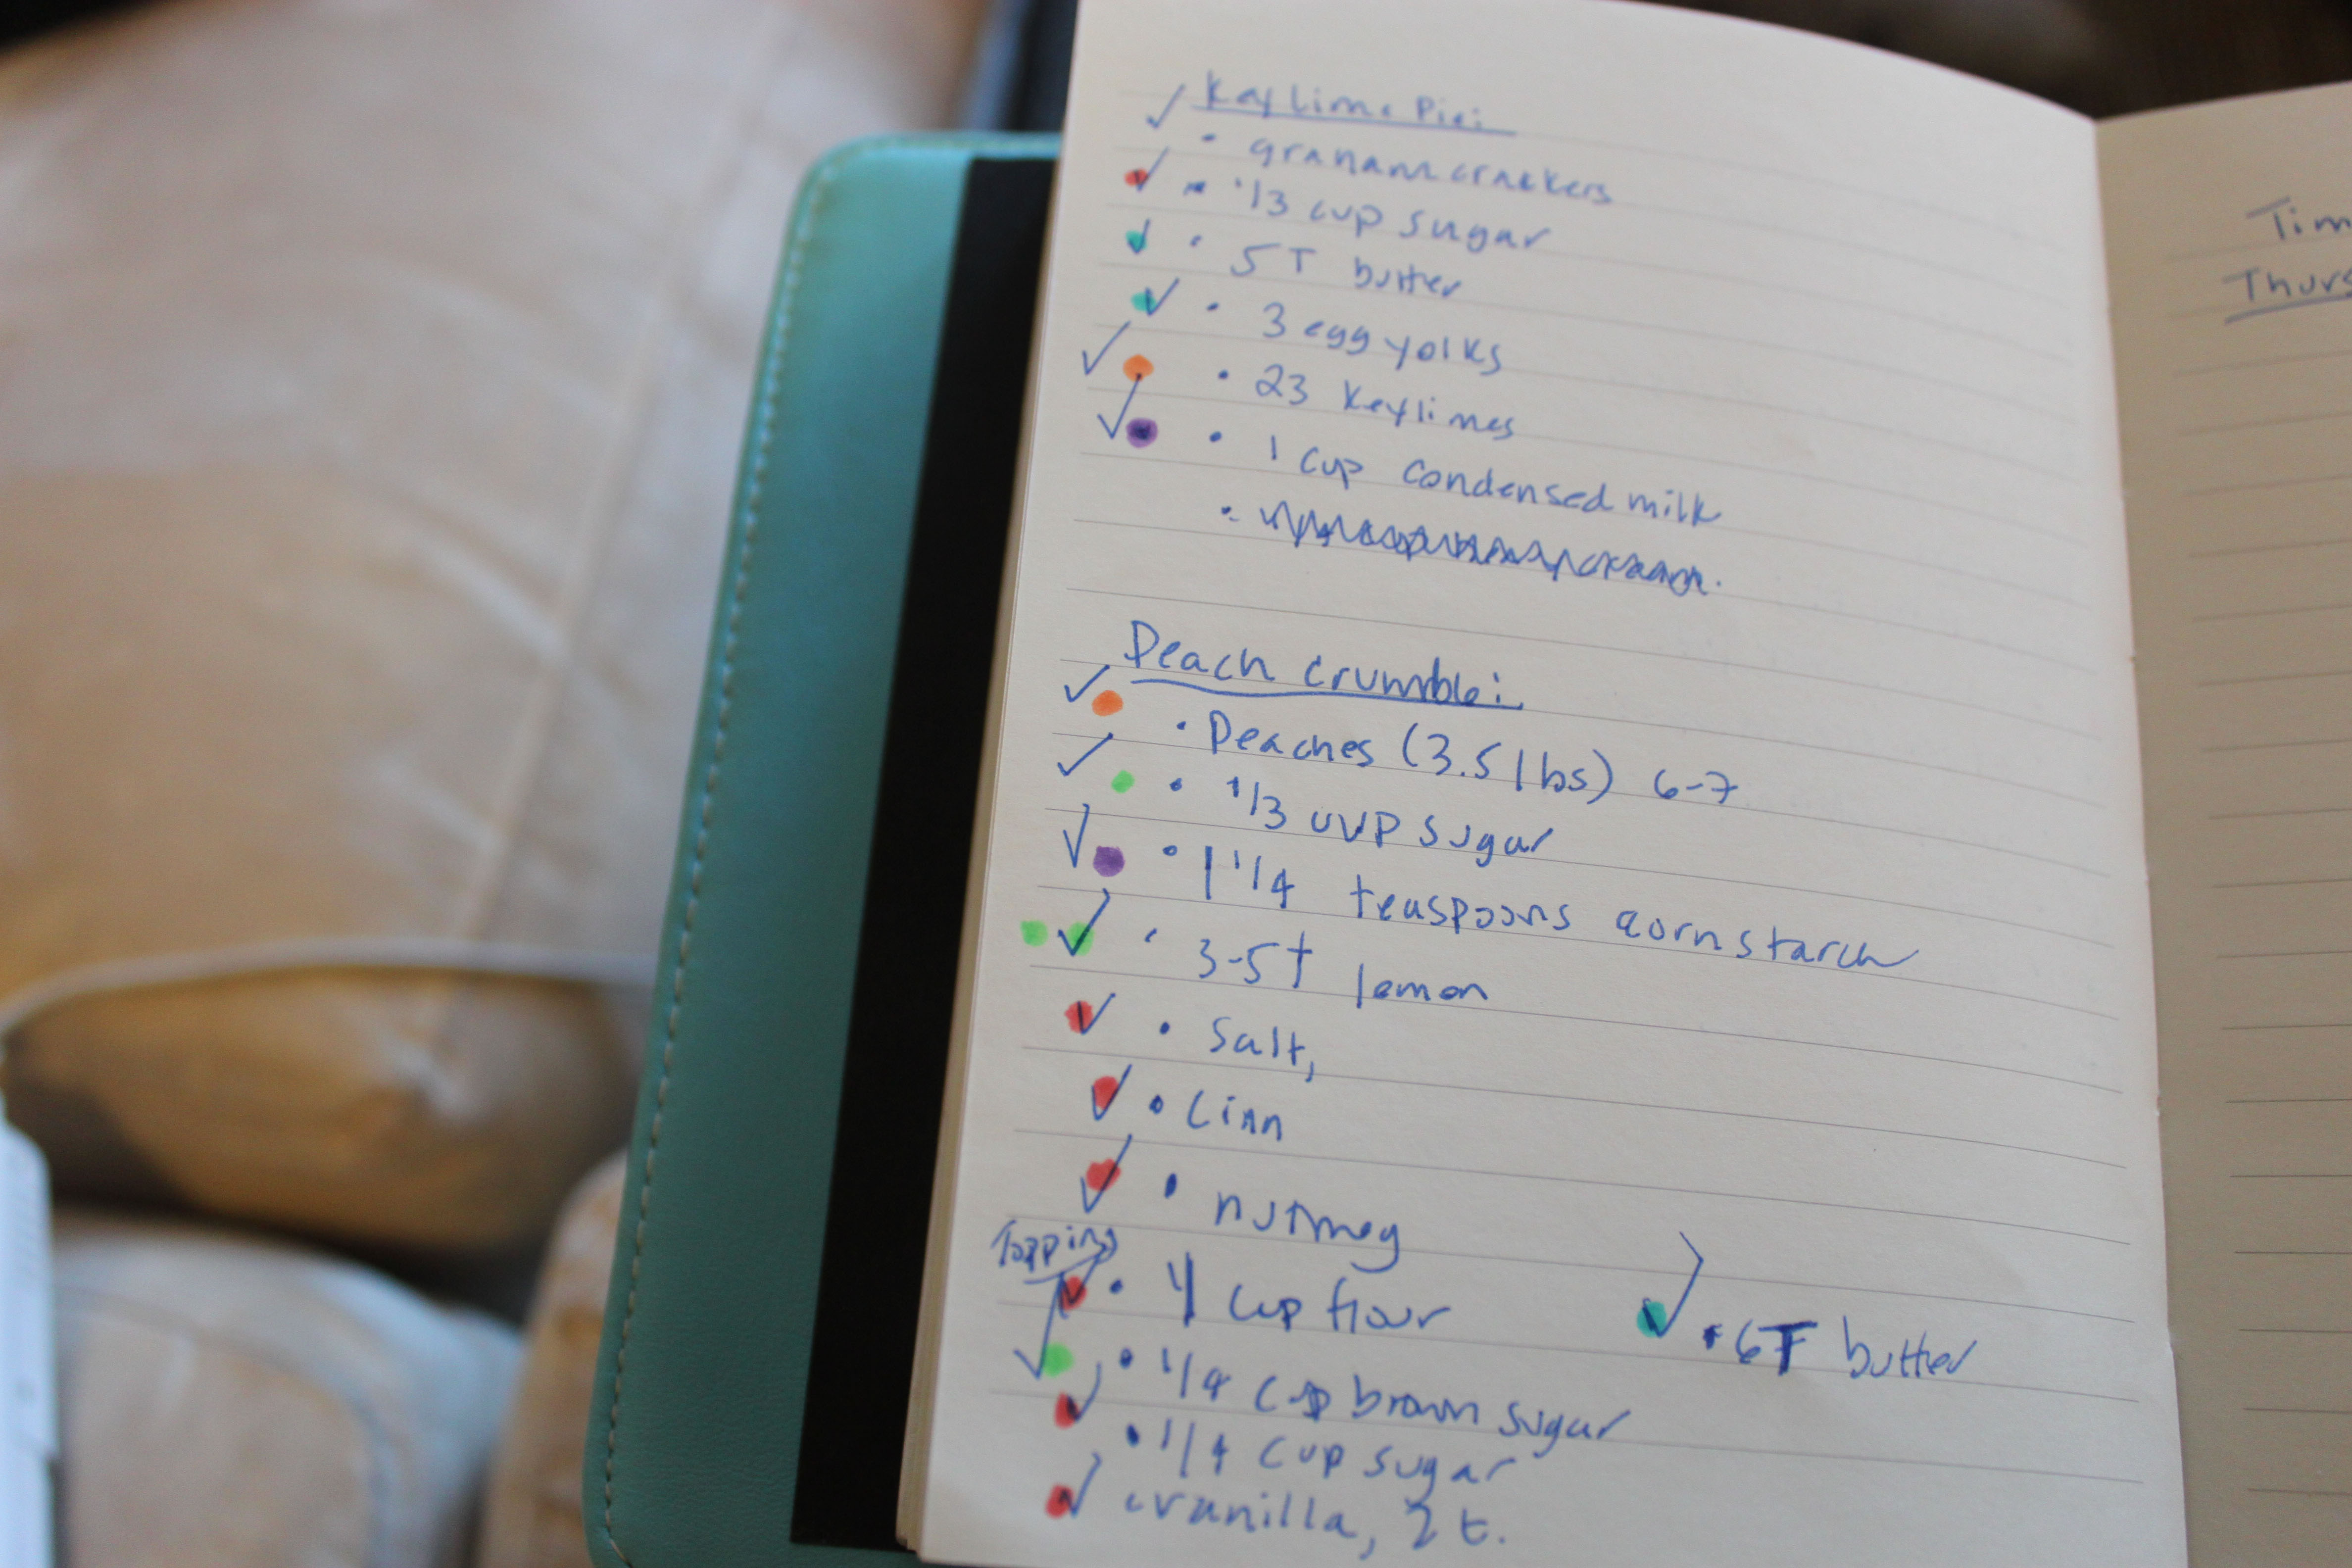 Key Lime Pie:
• graham crackers
• 1/3 cup sugar
• 5 T butter
• 3 egg yolks
• 23 Keylimes
• 1 cup condensed milk
Peach crumble:
• Peaches (3.5 lbs) 6-7
• 1/3 cup sugar
• 1 1/4 teaspoons cornstarch
• 3-5 t lemon
• Salt,
• Cinn
• nutmeg
Topping
• 1 cup flour
• 6T butter
• 1/4 cup brown sugar
• 1/4 cup sugar
• vanilla, 2 t.
Tim
Thurs